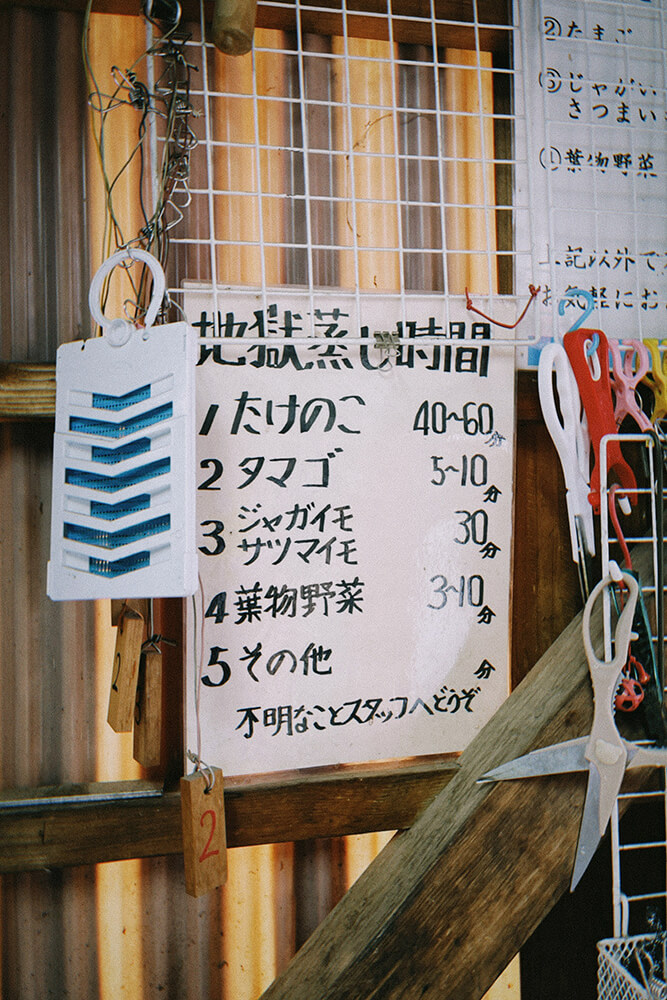 地獄蒸し時間
1 たけのこ 40~60分
2 タマゴ 5~10分
3 ジャガイモ サツマイモ 30分
4 葉物野菜 3~10分
5 その他 分
不明なことスタッフへどうぞ
②たまご
③じゃがい
さつまい
④葉物野菜
上記以外で
お気軽にお
2
2